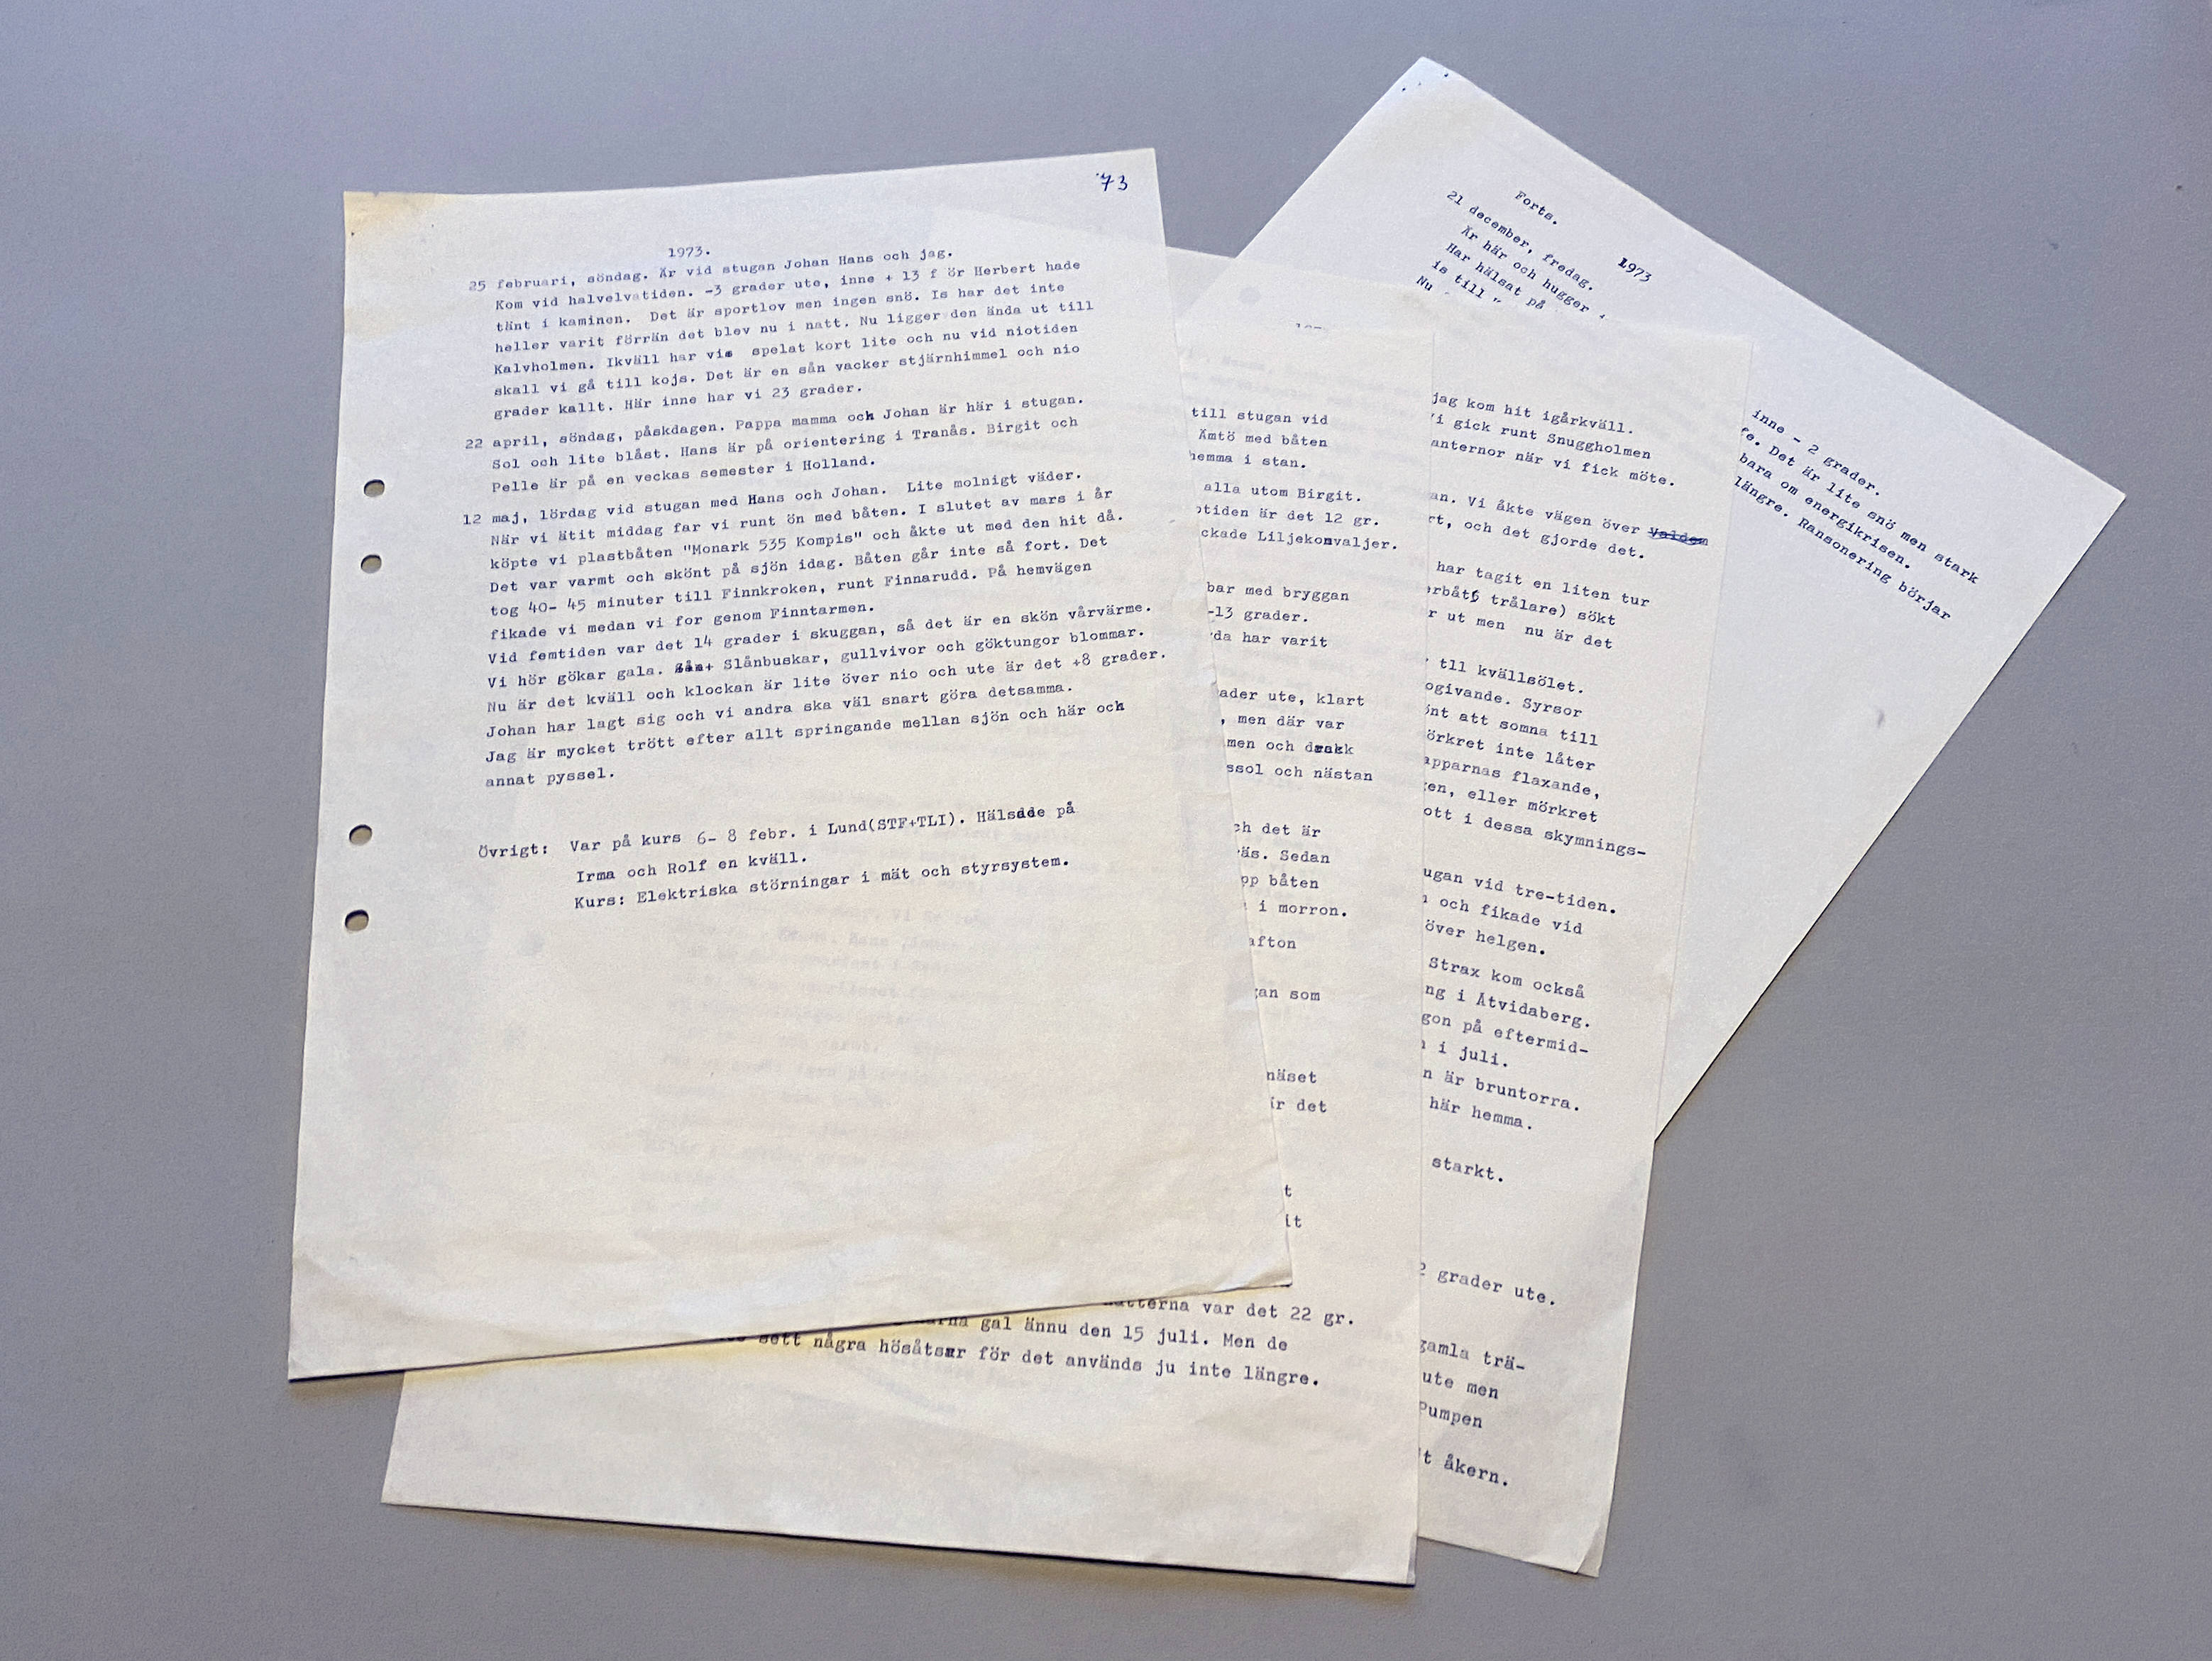 '73
1973.
25 februari, söndag. Är vid stugan Johan Hans och jag.
Kom vid halvelvatiden. -3 grader ute, inne + 13 f ör Herbert hade
tänt i kaminen.  Det är sportlov men ingen snö. Is har det inte
heller varit förrän det blev nu i natt. Nu ligger den ända ut till
Kalvholmen. Ikväll har vi spelat kort lite och nu vid niotiden
skall vi gå till kojs. Det är en sån vacker stjärnhimmel och nio
grader kallt. Här inne har vi 23 grader.
22 april, söndag, påskdagen. Pappa mamma och Johan är här i stugan.
Sol och lite blåst. Hans är på orientering i Tranås. Birgit och
Pelle är på en veckas semester i Holland.
12 maj, lördag vid stugan med Hans och Johan.  Lite molnigt väder.
När vi ätit middag far vi runt ön med båten. I slutet av mars i år
köpte vi plastbåten "Monark 535 Kompis" och åkte ut med den hit då.
Det var varmt och skönt på sjön idag. Båten går inte så fort. Det
tog 40- 45 minuter till Finnkroken, runt Finnarudd. På hemvägen
fikade vi medan vi for genom Finntarmen.
Vid femtiden var det 14 grader i skuggan, så det är en skön vårvärme.
Vi hör gökar gala. Slånbuskar, gullvivor och göktungor blommar.
Nu är det kväll och klockan är lite över nio och ute är det +8 grader.
Johan har lagt sig och vi andra ska väl snart göra detsamma.
Jag är mycket trött efter allt springande mellan sjön och här och
annat pyssel.
Övrigt:  Var på kurs  6- 8 febr. i Lund(STF+TLI). Hälsade på
Irma och Rolf en kväll.
Kurs: Elektriska störningar i mät och styrsystem.
till stugan vid
Ämtö med båten
hemma i stan.
alla utom Birgit.
tiden är det 12 gr.
ckade Liljekonvaljer.
bar med bryggan
-13 grader.
da har varit
ader ute, klart
, men där var
men och drakk
ssol och nästan
ch det är
äs. Sedan
pp båten
i morron.
afton
an som
näset
är det
t
it
nätterna var det 22 gr.
arna gal ännu den 15 juli. Men de
sett några hösåtsar för det används ju inte längre.
jag kom hit igårkväll.
Vi gick runt Snuggholmen
anternor när vi fick möte.
an. Vi åkte vägen över Valdem
rt, och det gjorde det.
har tagit en liten tur
erbåt6 trålare) sökt
r ut men  nu är det
tll kvällsölet.
ogivande. Syrsor
önt att somna till
örkret inte låter
apparnas flaxande,
en, eller mörkret
ott i dessa skymnings-
ugan vid tre-tiden.
och fikade vid
över helgen.
Strax kom också
ng i Åtvidaberg.
gon på eftermid-
i juli.
n är bruntorra.
här hemma.
starkt.
2 grader ute.
gamla trä-
ute men
Pumpen
t åkern.
Forts.
1973
21 december, fredag.
Är här och hugger
Har hälsat på
is till "
Nu
inne - 2 grader.
fe. Det är lite snö men stark
bara om energikrisen.
längre. Ransonering börjar